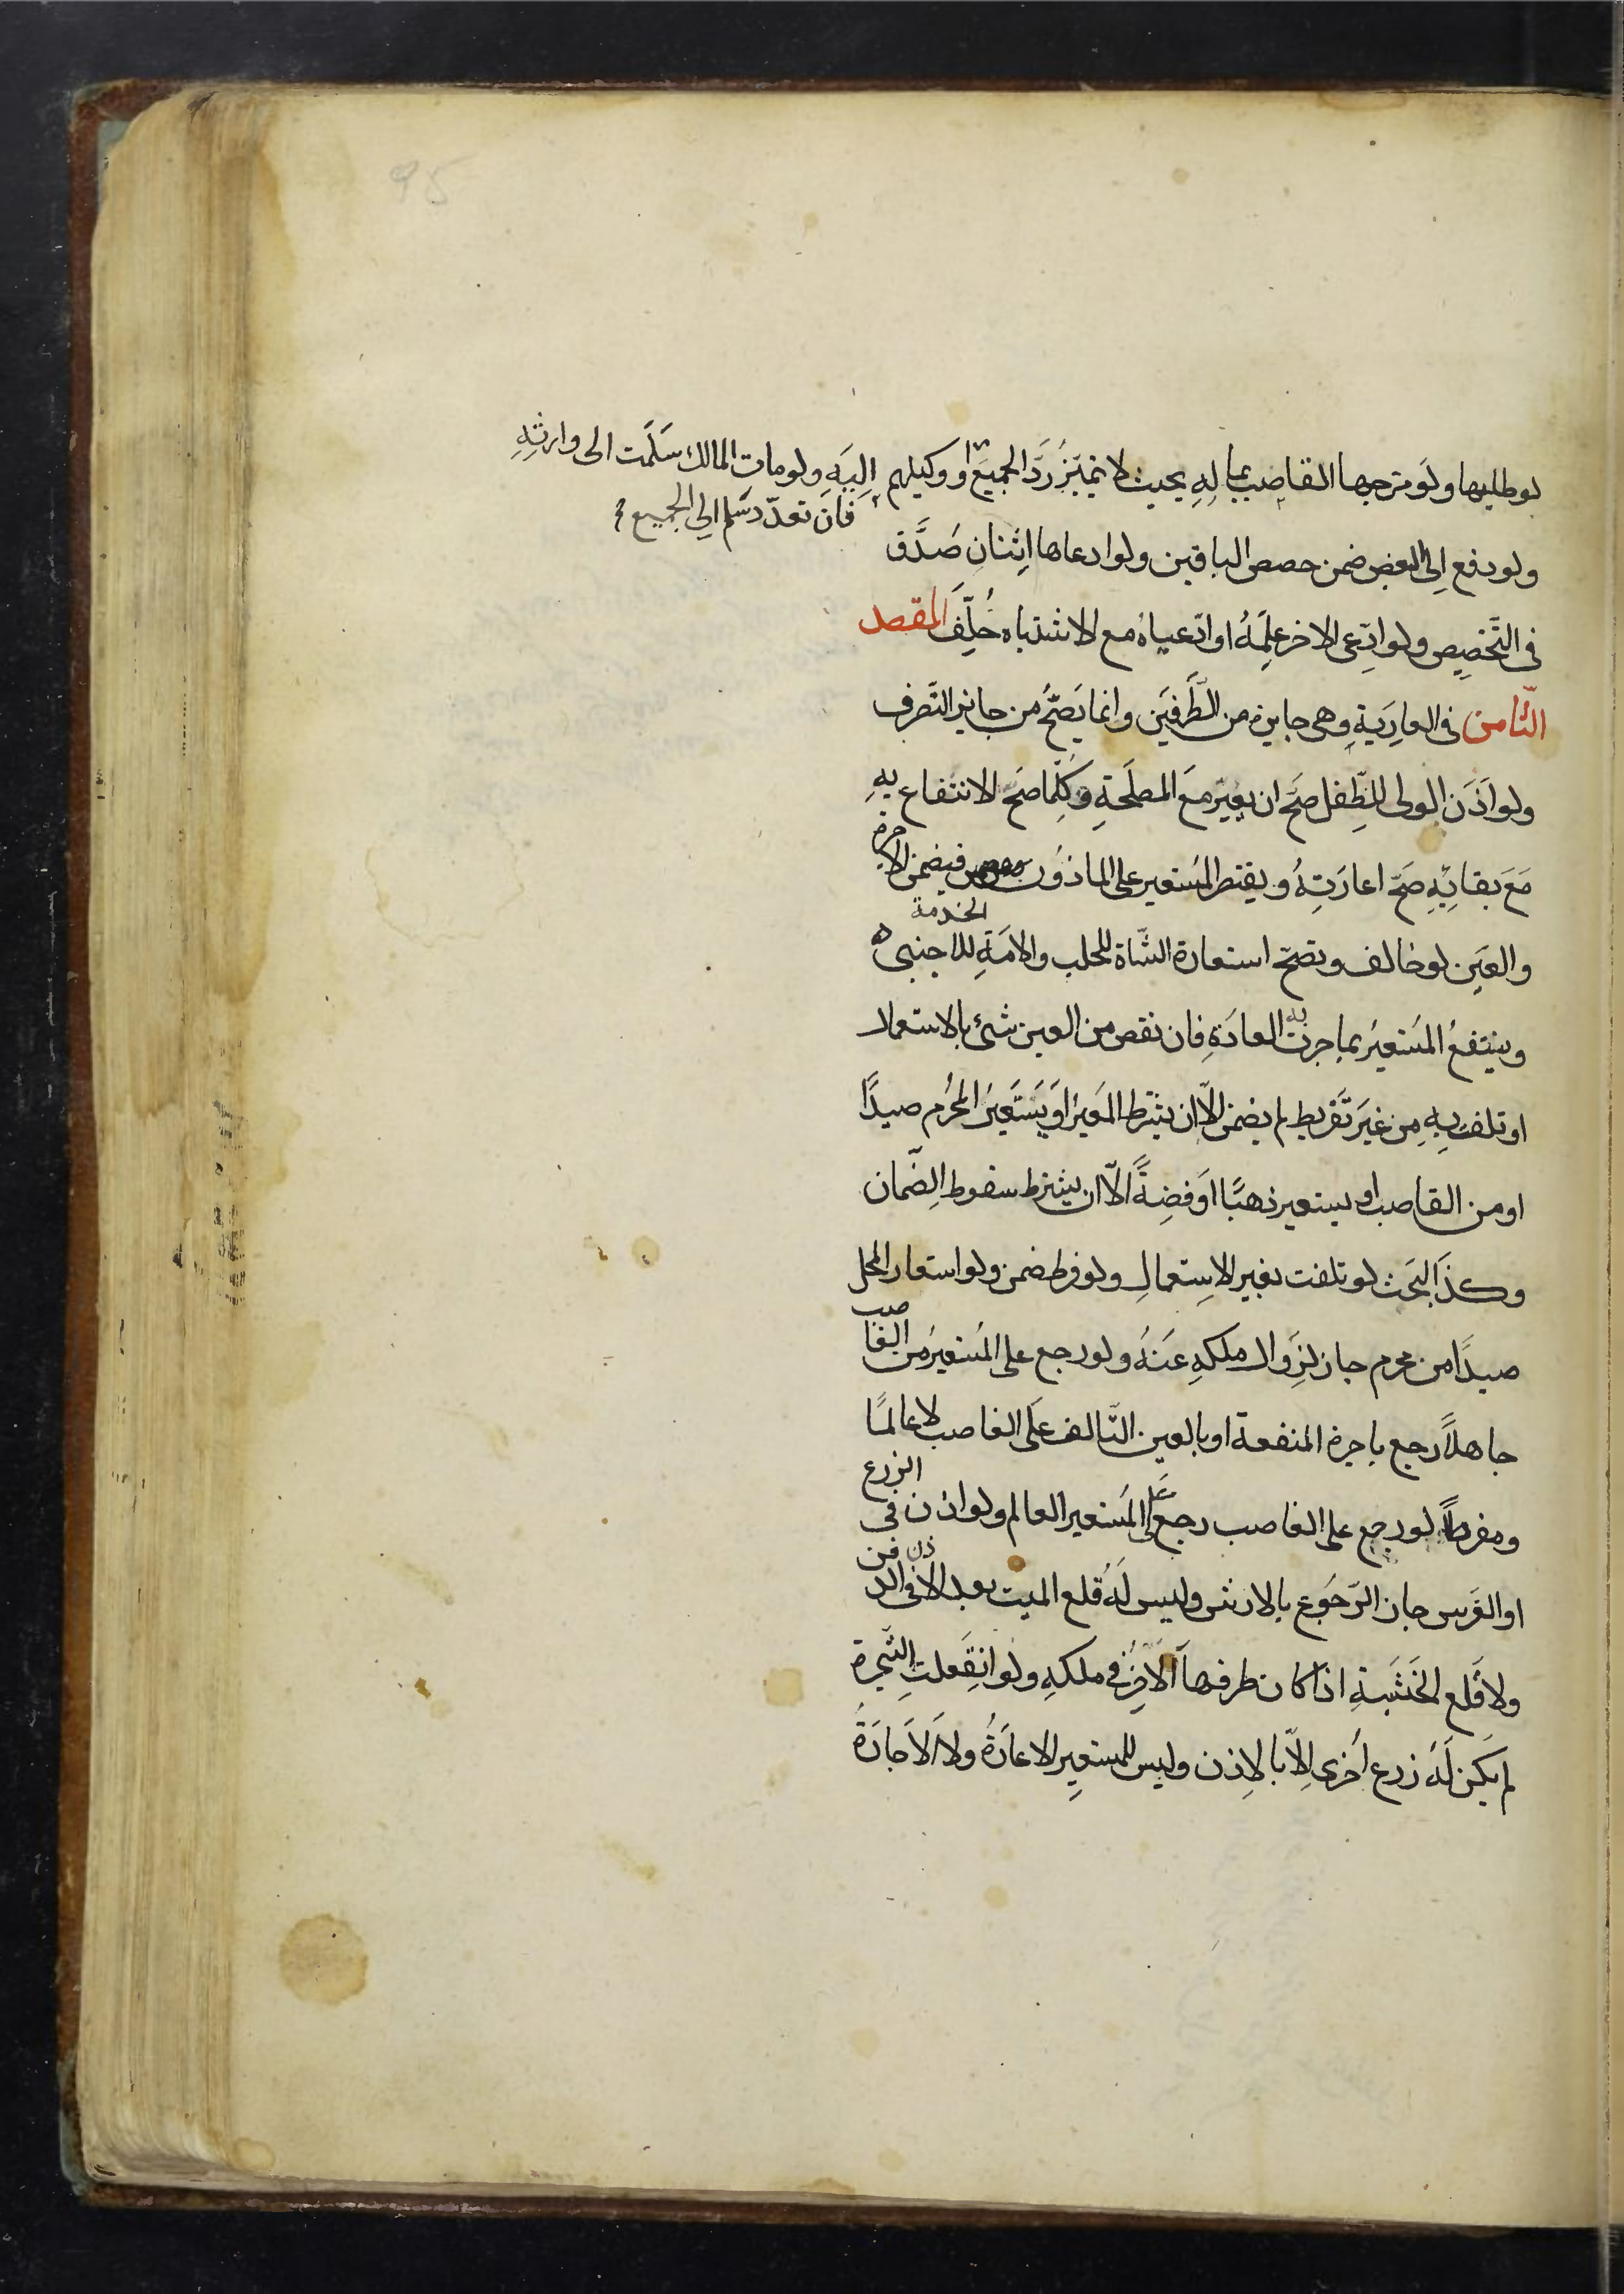 95
لو طلبها ولو مزجها الغاصب بماله بحيث لا يتميز رد الجميع او وكيلهم
اليه ولو مات المالك سلمت الى وارثه
فان تعدد سلم الى الجميع
ولو دفع الى البعض ضمن حصص الباقين ولو ادعاها اثنان صدق
فى التخصيص ولو ادعى الاخر علمه او ادعياه مع الاشتباه حلف المقصد
الثامن فى العارية وهى جايزة من الطرفين وانما يصح من جايز التصرف
ولو اذن الولى للطفل صح ان يعير مع المصلحة وكلما صح الانتفاع به
مع بقائه صح اعارته ويقتصر المستعير على الماذون فيضمن الاجرة
والعين لو خالف وتصح استعارة الشاة للحلب والامة للخدمة للاجنبى
وينتفع المستعير بما جرت به العادة فان نقص من العين شئ بالاستعمال
او تلفت به من غير تفريط لم يضمن الا ان يشترط المعير او يستعير المحرم صيدًا
او من الغاصب او يستعير ذهبًا او فضةً الا ان يشترط سقوط الضمان
وكذا البحث لو تلفت بغير الاستعمال ولو فرط ضمن ولو استعار المحل
صيدًا من محرم جاز لزوال ملكه عنه ولو رجع على المستعير من الغاصب
جاهلًا رجع باجرة المنفعة او بالعين التالف على الغاصب لا عالمًا
ومفرطًا لو رجع على الغاصب رجع على المستعير العالم ولو اذن فى الزرع
او الغرس جاز الرجوع بالارش وليس له قلع الميت بعد الاذن فى الدفن
ولا قلع الخشبة اذا كان طرفها الاخر فى ملكه ولو انقلعت الشجرة
لم يكن له زرع اخرى الا بالاذن وليس للمستعير الاعارة ولا الاجارة